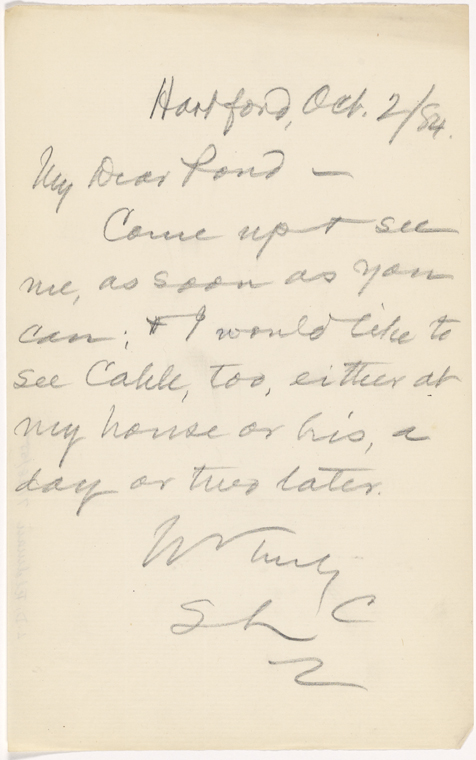 Hartford, Oct. 2/84.
My Dear Pond —
Come up & see
me, as soon as you
can; & I would like to
see Cable, too, either at
my house or his, a
day or two later.
Truly
SLC